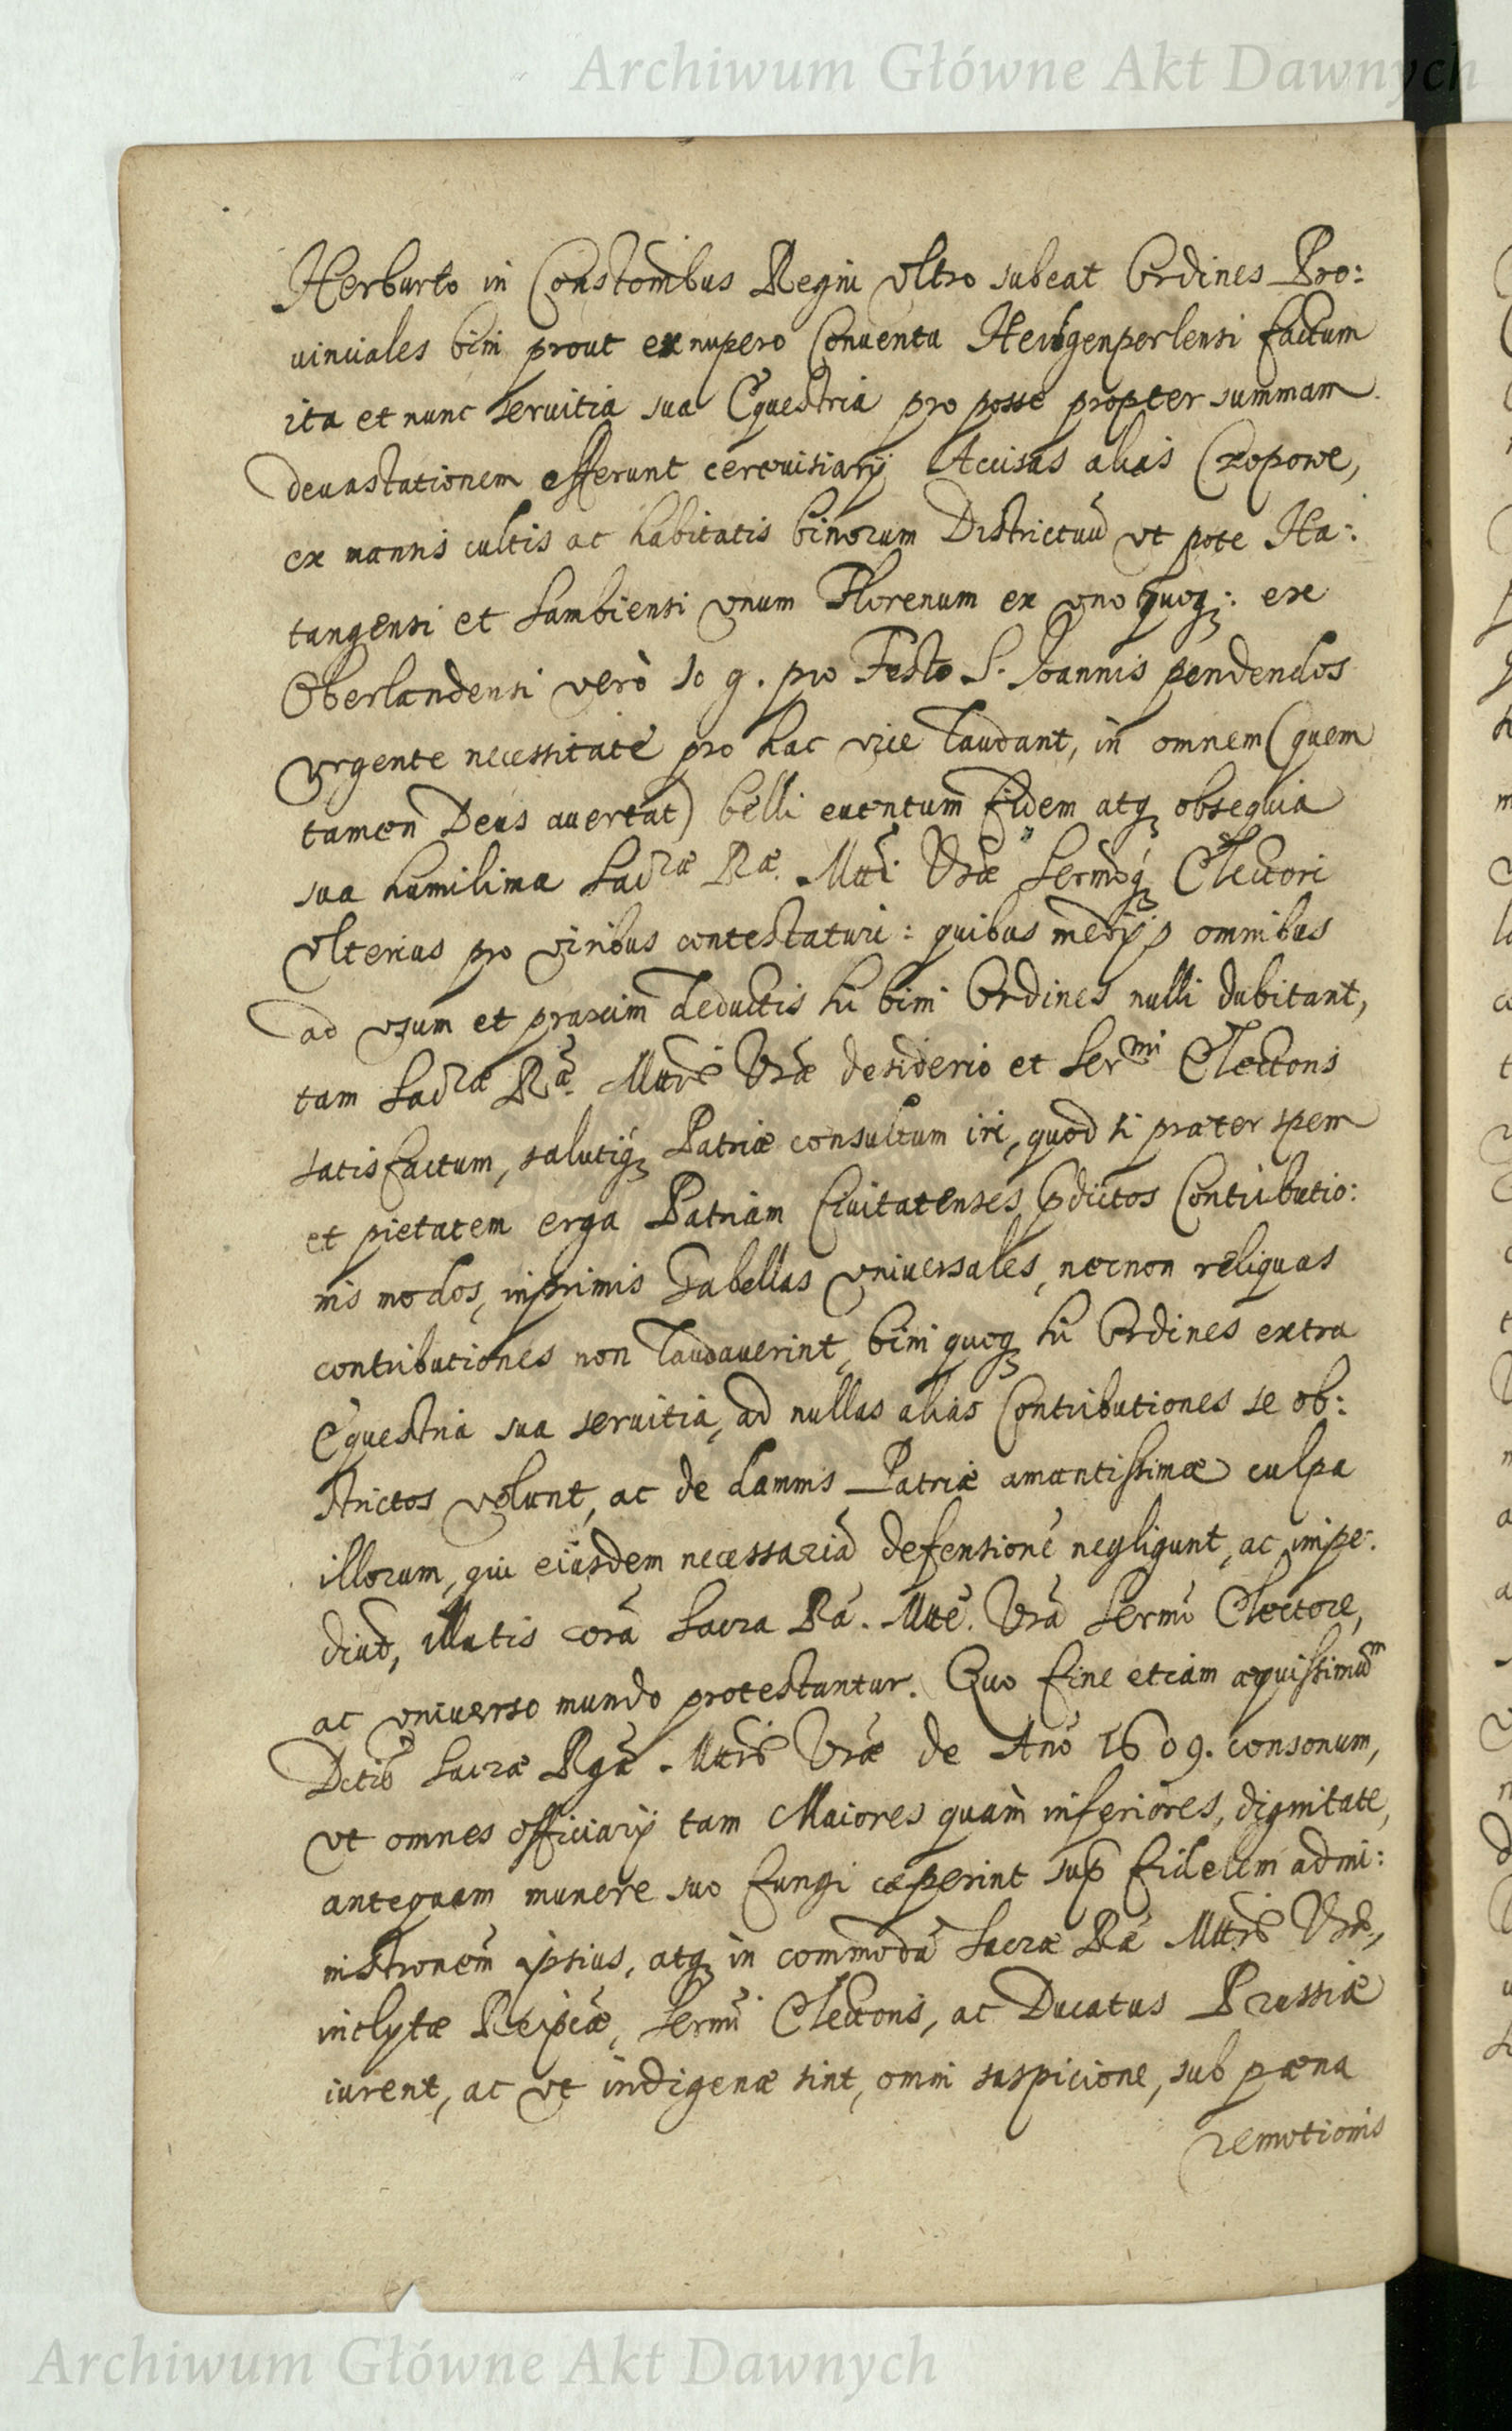 Archiwum Główne Akt Dawnych
Herburto in Constōnibus Regni ultro subeat Ordines Pro:
uinciales bini prout ex nupero Conuentu Heiligenperlensi factum
ita et nunc seruitia sua Equestria pro posse propter summam
deuastationem offerunt cereuisiarij Accisas alias Czopowe,
ex mansis cultis ac habitatis binorum Districtuū vt pote Na:
tangensi et Sambiensi vnum Florenum ex vno quoq: ex
Oberlandensi verò 10 g. pro Festo S. Joannis pendendos
vrgente necessitate pro hac vice laudant, in omnem (quem
tamen Deus auertat) belli euentum fidem atq obsequia
sua humilima Sacræ Ræ. Mtti Vræ Sermoq Electori
vlterius pro viribus contestaturi: quibus medijs omnibus
ad vsum et praxim deductis hi bini Ordines nulli dubitant,
tam Sacræ Ræ. Mttis Vræ desiderio et Sermi Electoris
satisfactum, salutiq Patriæ consultum iri, quod si præter spem
et pietatem erga Patriam Ciuitatenses pdictos Contributio:
nis modos, inprimis Gabellas vniuersales, necnon reliquas
contributiones non laudauerint, bini quoq hi Ordines extra
Equestria sua seruitia, ad nullas alias Contributiones se ob:
strictos volunt, ac de damnis Patriæ amantissimæ culpa
illorum, qui eiusdem necessariā defensionē negligunt, ac impe:
diūt, illatis corā Sacra Rā. Mttē. Vrā Sermo Electore,
ac vniuerso mundo protestantur. Quo fine etiam æquissimūm
Dctio Sacræ Rgæ Mttis Vræ de Anō 1609. consonum,
vt omnes officiarij tam Maiores quam inferiores, dignitate,
antequam munere suo fungi cæperint sup fidelem admi:
nistronem ipsius, atq in commodā Sacræ Ræ Mttis Vræ,
inclytæ Reipcæ, Sermi Electoris, ac Ducatus Prussiæ
iurent, ac vt indigenæ sint, omni suspicione, sub pæna
remotionis
Archiwum Główne Akt Dawnych